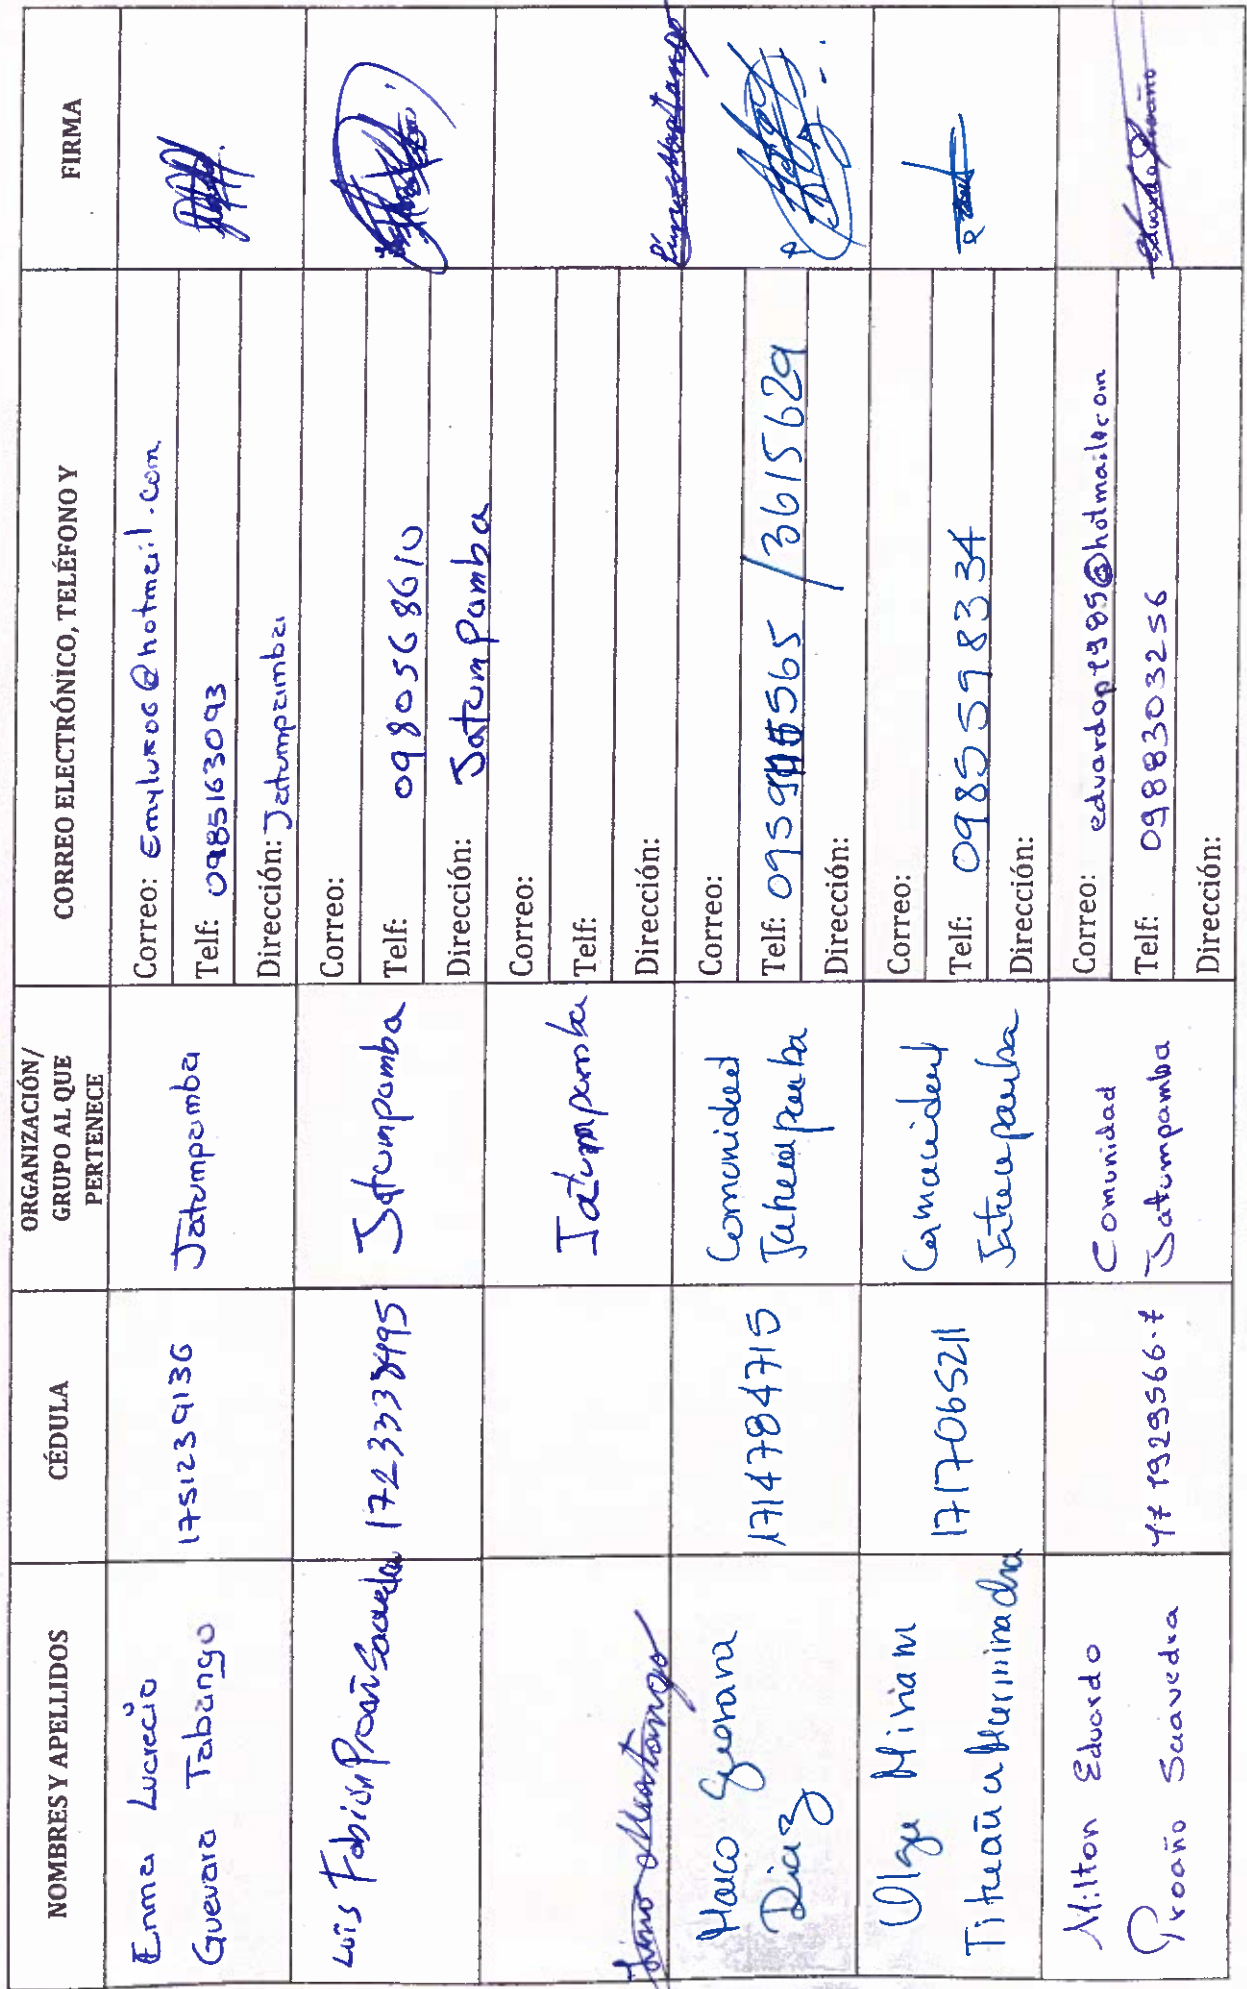 NOMBRES Y APELLIDOS
CÉDULA
ORGANIZACIÓN/
GRUPO AL QUE
PERTENECE
CORREO ELECTRÓNICO, TELÉFONO Y
FIRMA
Enma Lucrecia
Guevara Tabango
1751239136
Jatumpamba
Correo: Emylu206@hotmail.com
Telf: 0985163093
Dirección: Jatumpamba
Luis Fabian Proaño Saavedra
1723338495
Jatumpamba
Correo:
Telf: 0980568610
Dirección: Jatumpamba
Jatumpamba
Correo:
Telf:
Dirección:
Marco Guevara
Diaz
1714784715
Comunidad
Jatumpamba
Correo:
Telf: /3615629
Dirección:
Olga Miriam
Tituaña
1717065211
Comunidad
Jatumpamba
Correo:
Telf: 0985598334
Dirección:
Milton Eduardo
Proaño Saavedra
171929566-7
Comunidad
Jatumpamba
Correo: eduardop1985@hotmail.com
Telf: 0988303256
Dirección: